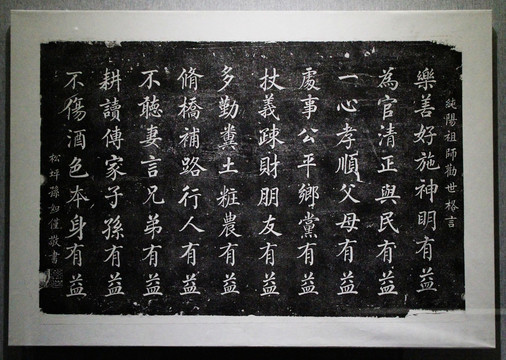 純陽祖師勸世格言
樂善好施神明有益
為官清正與民有益
一心孝順父母有益
處事公平鄉黨有益
杖義疎財朋友有益
多勤糞土粧農有益
脩橋補路行人有益
不聽妻言兄弟有益
耕讀傳家子孫有益
不傷酒色本身有益
松坪孫
敬書